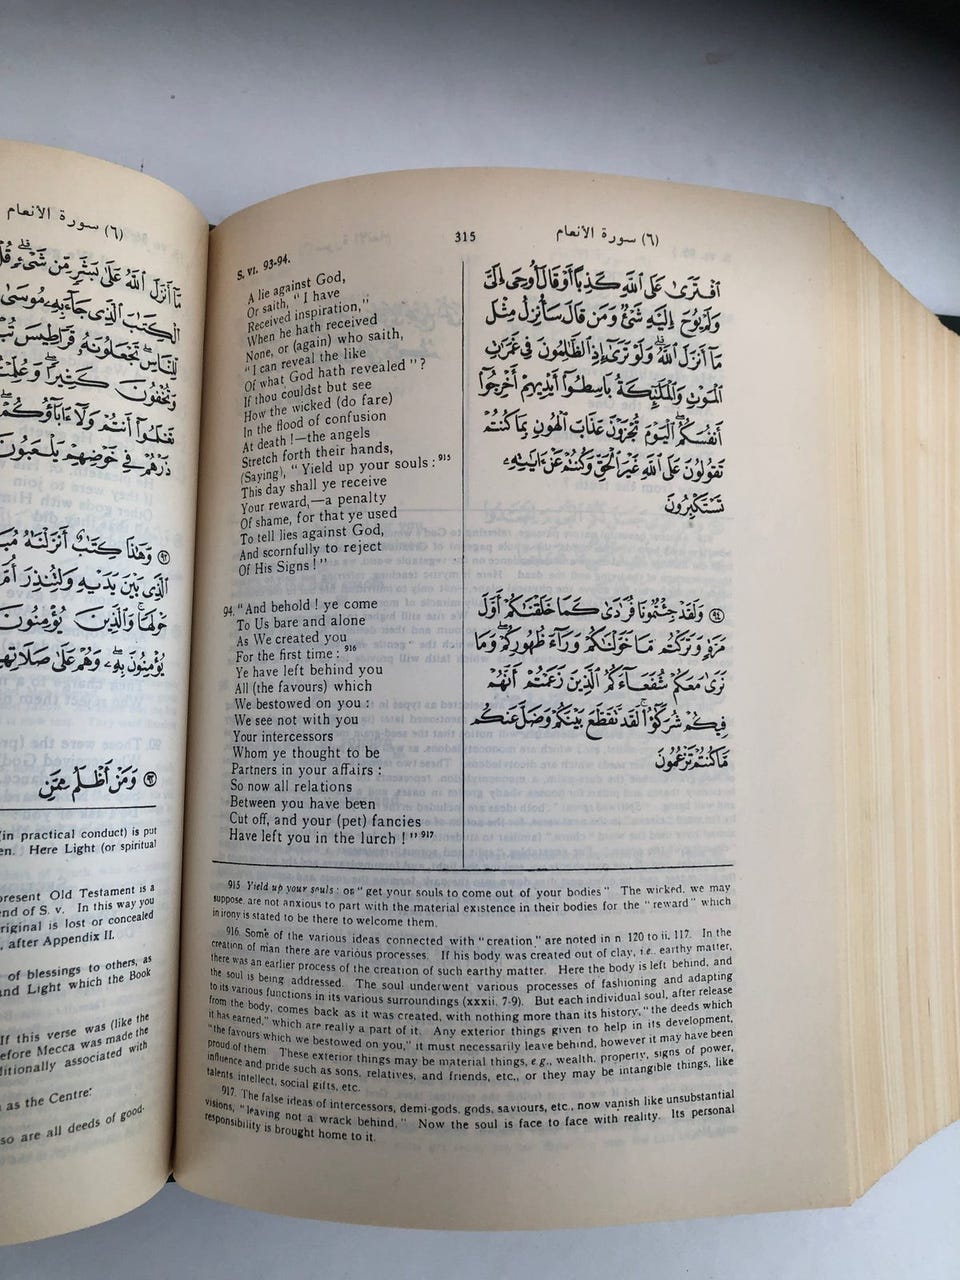 (٦) سورة الأنعام
مَا أَنزَلَ ٱللَّهُ عَلَىٰ بَشَرٍ مِّن شَىْءٍ قُلْ
ٱلْكِتَٰبَ ٱلَّذِى جَآءَ بِهِۦ مُوسَىٰ
لِّلنَّاسِ تَجْعَلُونَهُۥ قَرَاطِيسَ
وَتُخْفُونَ كَثِيرًا وَعُلِّمْتُم
تَعْلَمُوٓا۟ أَنتُمْ وَلَآ ءَابَآؤُكُمْ
ذَرْهُمْ فِى خَوْضِهِمْ يَلْعَبُونَ
٩٢ وَهَٰذَا كِتَٰبٌ أَنزَلْنَٰهُ
ٱلَّذِى بَيْنَ يَدَيْهِ وَلِتُنذِرَ
حَوْلَهَا وَٱلَّذِينَ يُؤْمِنُونَ
يُؤْمِنُونَ بِهِۦ وَهُمْ عَلَىٰ صَلَاتِهِمْ
٩٣ وَمَنْ أَظْلَمُ مِمَّنِ
(in practical conduct) is put
Here Light (or spiritual
present Old Testament is a
end of S. v. In this way you
original is lost or concealed
, after Appendix II.
of blessings to others, as
and Light which the Book
If this verse was (like the
before Mecca was made the
ditionally associated with
as the Centre:
so are all deeds of good-
S. VI. 93-94.
315
(٦) سورة الأنعام
A lie against God,
Or saith, "I have
Received inspiration,"
When he hath received
None, or (again) who saith,
"I can reveal the like
Of what God hath revealed"?
If thou couldst but see
How the wicked (do fare)
In the flood of confusion
At death !—the angels
Stretch forth their hands,
(Saying), "Yield up your souls : 915
This day shall ye receive
Your reward,—a penalty
Of shame, for that ye used
To tell lies against God,
And scornfully to reject
Of His Signs !"
ٱفْتَرَىٰ عَلَى ٱللَّهِ كَذِبًا أَوْ قَالَ أُوحِىَ إِلَىَّ
وَلَمْ يُوحَ إِلَيْهِ شَىْءٌ وَمَن قَالَ سَأُنزِلُ مِثْلَ
مَآ أَنزَلَ ٱللَّهُ وَلَوْ تَرَىٰٓ إِذِ ٱلظَّٰلِمُونَ فِى غَمَرَٰتِ
ٱلْمَوْتِ وَٱلْمَلَٰٓئِكَةُ بَاسِطُوٓا۟ أَيْدِيهِمْ أَخْرِجُوٓا۟
أَنفُسَكُمُ ٱلْيَوْمَ تُجْزَوْنَ عَذَابَ ٱلْهُونِ بِمَا كُنتُمْ
تَقُولُونَ عَلَى ٱللَّهِ غَيْرَ ٱلْحَقِّ وَكُنتُمْ عَنْ ءَايَٰتِهِۦ
تَسْتَكْبِرُونَ
94. "And behold ! ye come
To Us bare and alone
As We created you
For the first time : 916
Ye have left behind you
All (the favours) which
We bestowed on you :
We see not with you
Your intercessors
Whom ye thought to be
Partners in your affairs :
So now all relations
Between you have been
Cut off, and your (pet) fancies
Have left you in the lurch !" 917
٩٤ وَلَقَدْ جِئْتُمُونَا فُرَٰدَىٰ كَمَا خَلَقْنَٰكُمْ أَوَّلَ
مَرَّةٍ وَتَرَكْتُم مَّا خَوَّلْنَٰكُمْ وَرَآءَ ظُهُورِكُمْ وَمَا
نَرَىٰ مَعَكُمْ شُفَعَآءَكُمُ ٱلَّذِينَ زَعَمْتُمْ أَنَّهُمْ
فِيكُمْ شُرَكَٰٓؤُا۟ لَقَد تَّقَطَّعَ بَيْنَكُمْ وَضَلَّ عَنكُم
مَّا كُنتُمْ تَزْعُمُونَ
915 Yield up your souls : or "get your souls to come out of your bodies" The wicked, we may
suppose, are not anxious to part with the material existence in their bodies for the "reward" which
in irony is stated to be there to welcome them.
916. Some of the various ideas connected with "creation," are noted in n 120 to ii. 117. In the
creation of man there are various processes. If his body was created out of clay, i.e. earthy matter,
there was an earlier process of the creation of such earthy matter. Here the body is left behind, and
the soul is being addressed. The soul underwent various processes of fashioning and adapting
to its various functions in its various surroundings (xxxii. 7-9). But each individual soul, after release
from the body, comes back as it was created, with nothing more than its history, "the deeds which
it has earned," which are really a part of it. Any exterior things given to help in its development,
"the favours which we bestowed on you," it must necessarily leave behind, however it may have been
proud of them. These exterior things may be material things, e.g., wealth, property, signs of power,
influence and pride such as sons, relatives, and friends, etc., or they may be intangible things, like
talents, intellect, social gifts, etc.
917. The false ideas of intercessors, demi-gods, gods, saviours, etc., now vanish like unsubstantial
visions, "leaving not a wrack behind." Now the soul is face to face with reality. Its personal
responsibility is brought home to it.